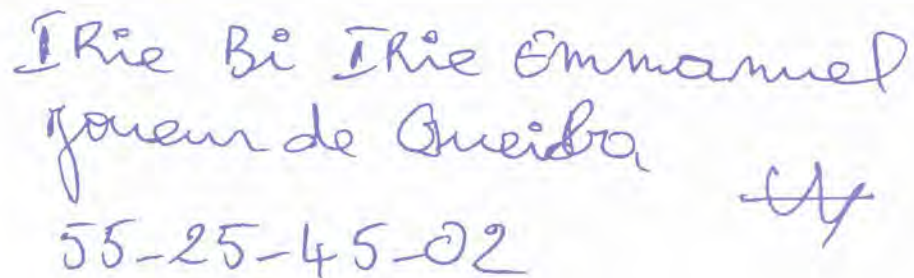 IRie Bi IRie Emmanuel
Joueur de
55-25-45-02